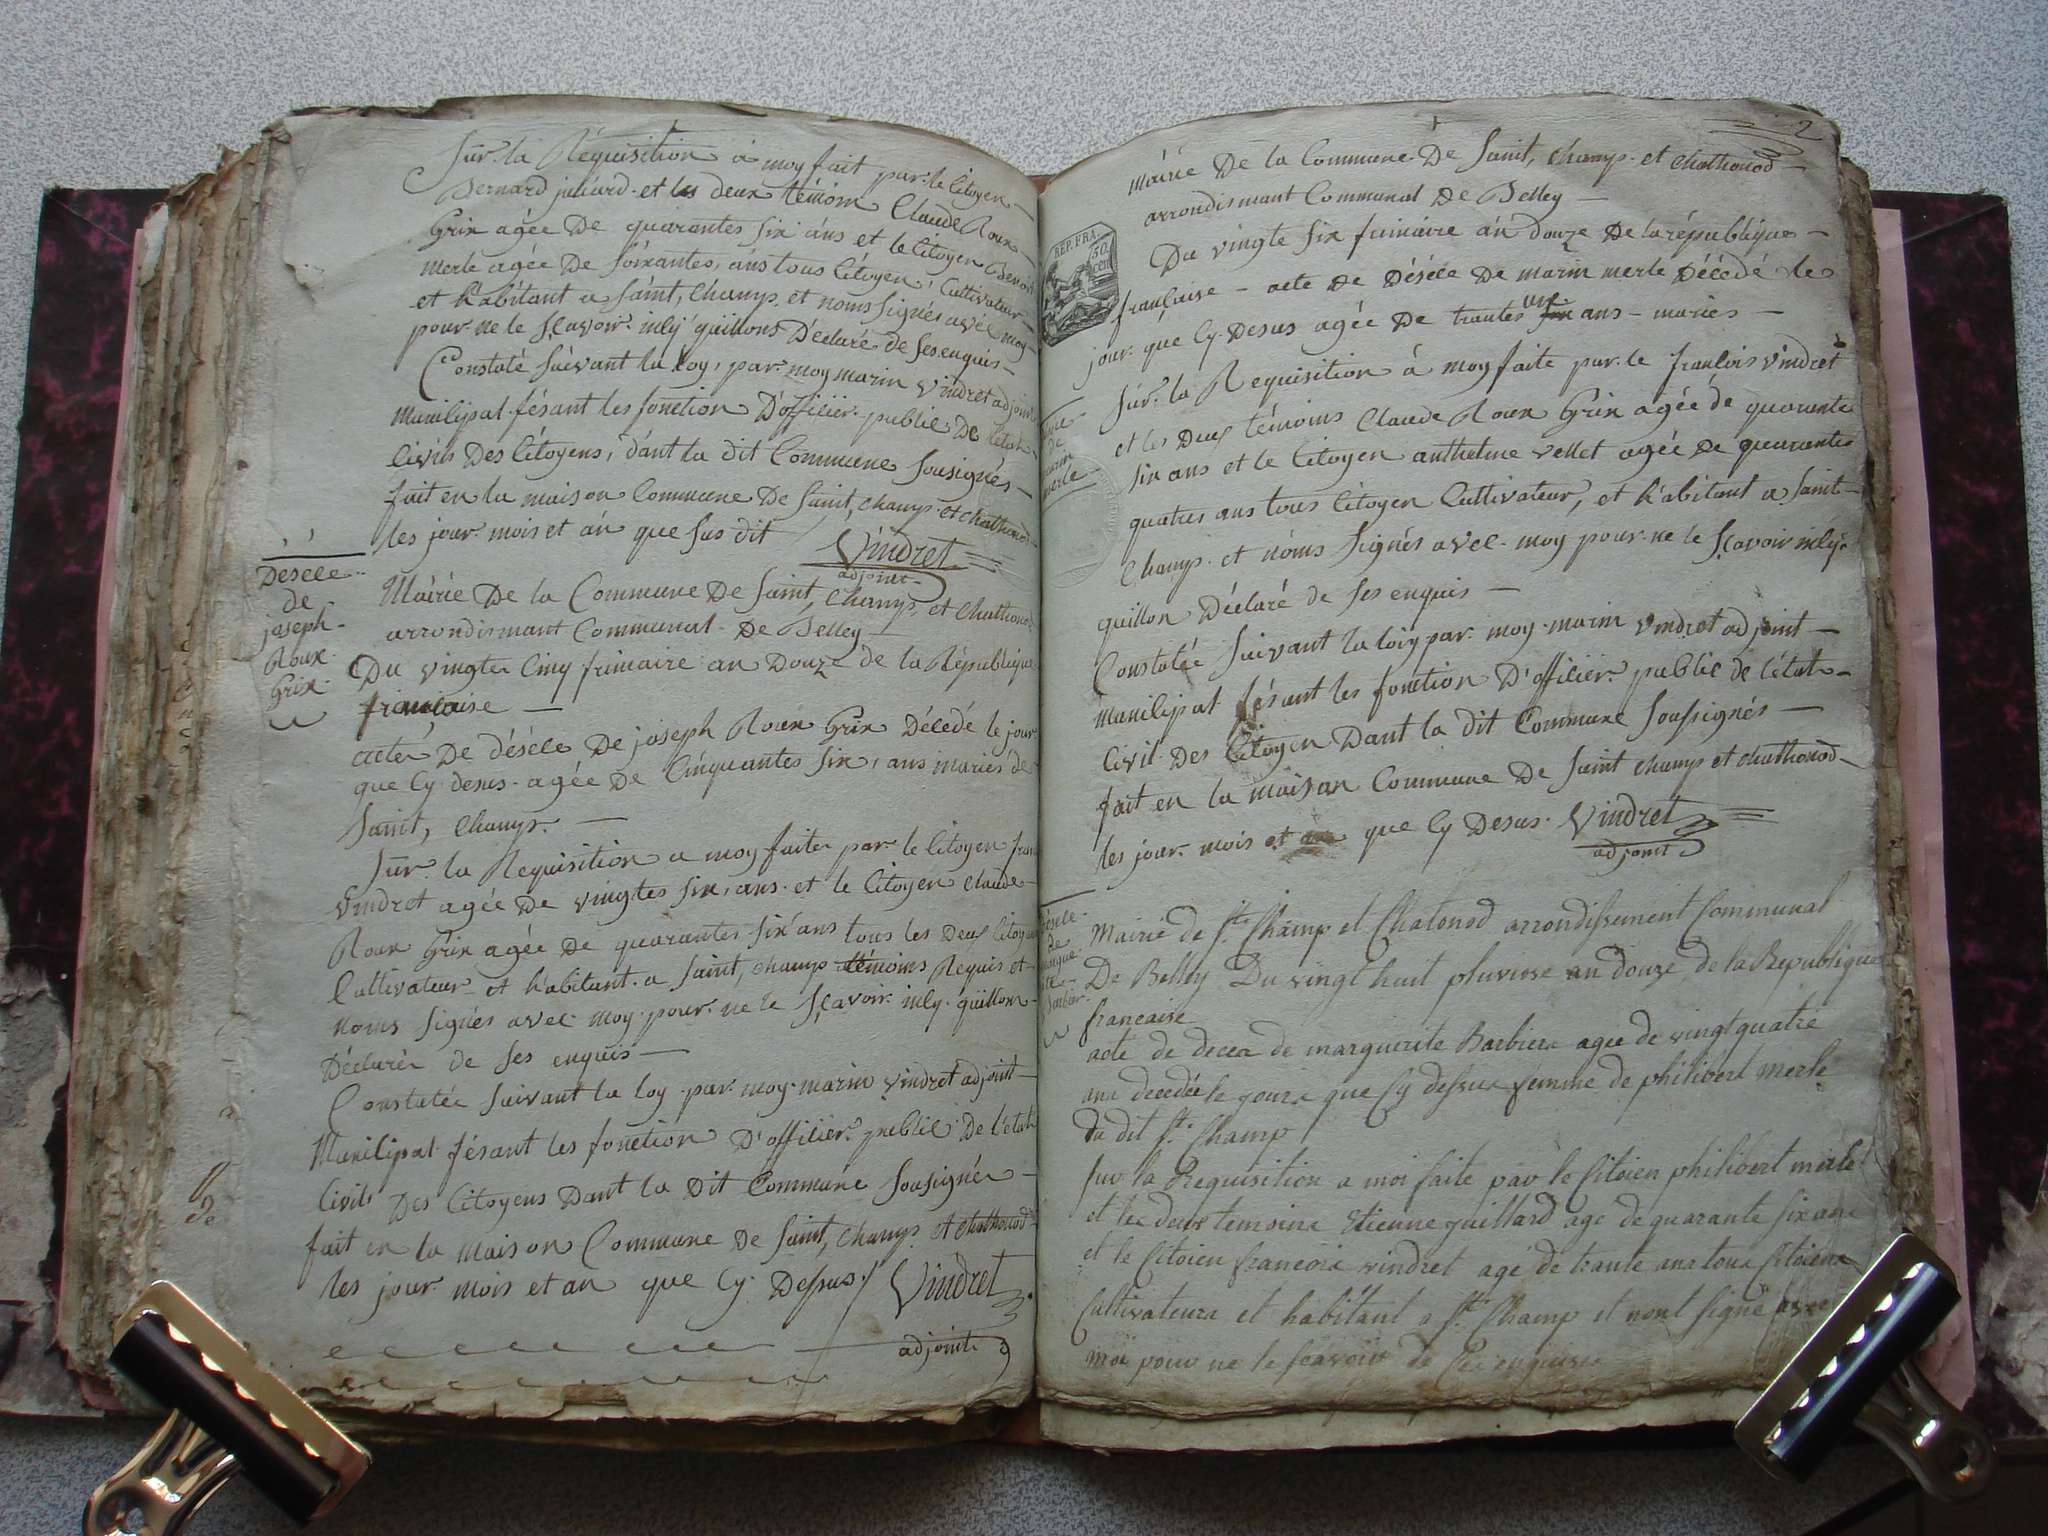 Sur la Réquisition à moy fait par le Citoyen
Bernard juliard et les deux témoin Claude Roux
Grix agée De quarantes six ans et le Citoyen Benoit
merle agée De soixantes, ans tous Citoyen, Cultivateur
et habitant a Saint, Champ et noms signés avec moy
pour ne le Sçavoir inly quillons Déclaré de ses enquis
Constaté suivant la Loy, par moy marin Vindret adjoint
Municipal fésant les fonction D'officier public De l'état
Civils Des Citoyens, dant la dit Commune Sousignés
fait en la maison Commune De Saint, Champ et Chathonod
les jour mois et an que sus dit
Vindret
adjoint
Désèce
de
joseph
Roux
Grix
Mairie De la Commune De Saint, Champ et Chathonod
arrondismant Communal De Belley
Du vingte Cinq frimaire an Douze de la République
francaise
acte De désèce De joseph Roux Grix Décédé le jour
que Cy desus agée De Cinquantes six, ans mariés de
Saint, Champ.
Sur la Requisition a moy faite par le Citoyen fran
Vindret agée De vingtes six, ans et le Citoyen Claude
Roux Grix agée De quarantes six ans tous les Deux Citoyen
Cultivateur et habitant a Saint, Champ témoins Requis et
noms signés avec moy pour ne le Sçavoir inly quillon
Déclarér de ses enquis
Constatée suivant la loy par moy marin Vindret adjoint
Municipal fésant les fonction D'officier public De l'état
Civils Des Citoyens Dant la Dit Commune Sousignée
fait en la maison Commune De Saint, Champ et Chathonod
les jour mois et an que Cy Dessus
Vindret
adjoint
2
Mairie De la Commune De Saint, Champ et Chathonod
arrondismant Communal De Belley
REP. FRA.
50
cen
Du vingte six frimaire an douze De la république
française - acte De Désèce De marin merle Décédé le
jour que Cy Desus agée De trantes un ans - mariés
Sur la Requisition à moy faite par le francois Vindret
et les Deux témoins Claude Roux Grix agée de quarante
six ans et le Citoyen anthelme vellet agée De quarantes
quatres ans tous Citoyen Cultivateur, et habitant a Saint
Champ et noms signés avec moy pour ne le Sçavoir inly
quillon Déclaré de ses enquis
merle
Constatée suivant la loiy par moy marin Vindret adjoint
Municipal fésant les fonction D'officier public de l'état
Civil Des Citoyen Dant la dit Commune Soussignés
fait en la maison Commune De Saint Champ et Chathonod
les jour mois et an que Cy Desus Vindret
adjoint
Mairie de St. Champ et Chatonod arrondissement Communal
De Belley Du vingt huit pluviose an douze de la Republique
francaise
acte de decea de marguerite Barbiera agée de vingt quatre
ans decedée le jours que Cy dessus femme de philibert merle
du dit St. Champ
Sur la Requisition a moi faite par le Citoien philibert merle
et les deux temoins Etienne guillard age de quarante six ans
et le Citoien francois vindret agé de trante ans tous Citoiens
Cultivateurs et habitant a St. Champ et nont signé avec
moi pour ne le scavoir de ses enquis